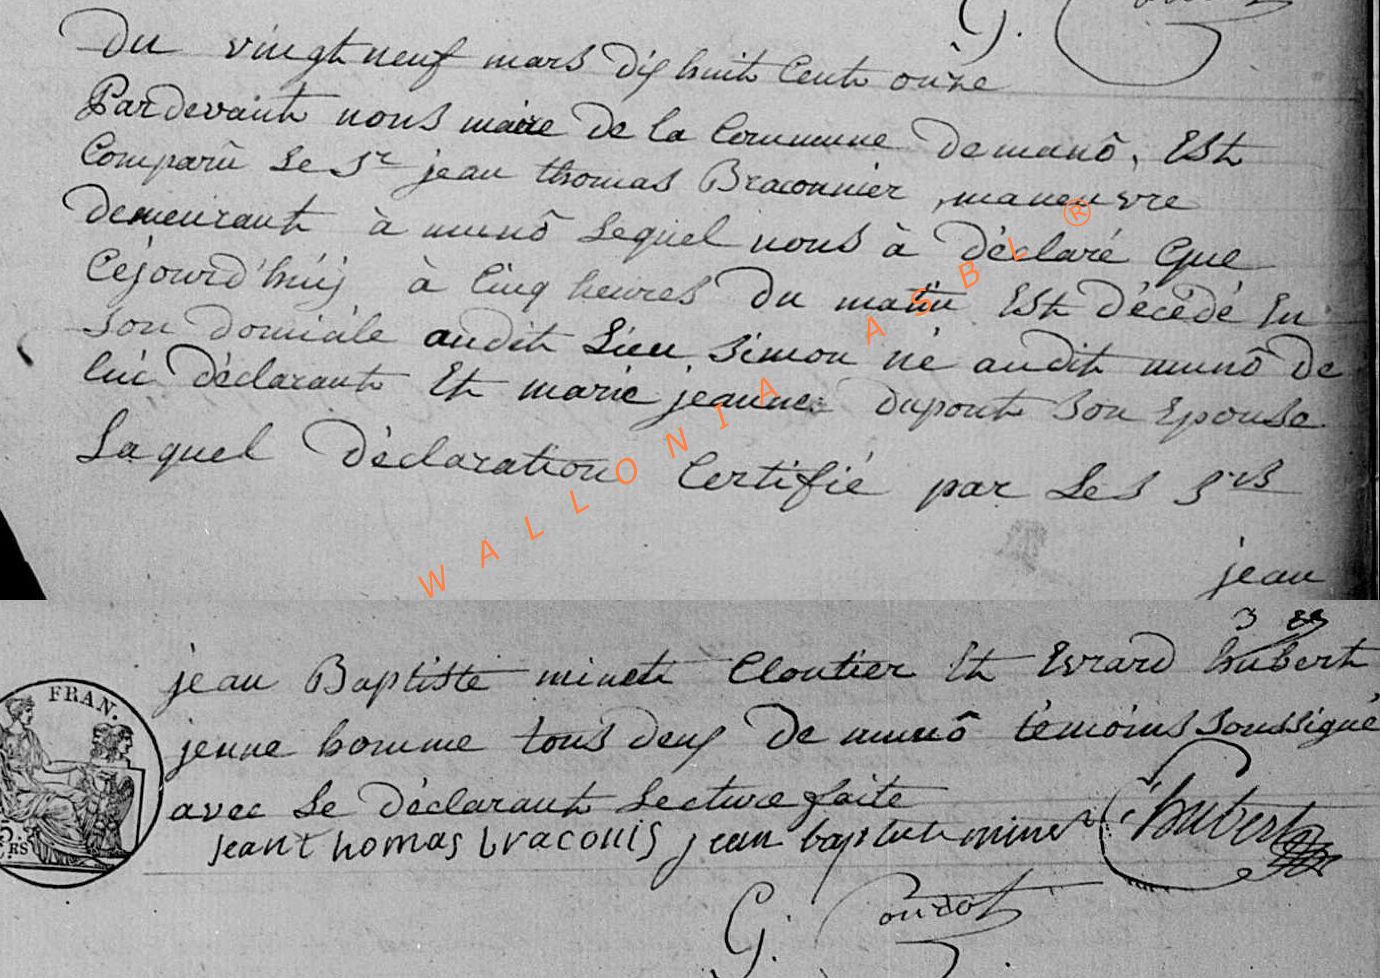 G.
Du vingt neuf mars dix huit cent onze
Pardevant nous maire de la Commune de munô, Est
Comparu Le Sr jean thomas Braconnier, maneuvre
demeurant à munô Lequel nous à déclaré Que
Cejourd'huij à Cinq heures du matin Est décédé En
Son domicile audit Lieu Simon né audit munô de
lui déclarant Et marie jeanne dupont Son Epouse
Laquel déclaration Certifié par Les Srs
jean
WALLONIA ASBL ®
jean Baptiste minet Cloutier Et Evrard hubert
jeune homme tous deux de munô témoins Soussigné
avec Le déclarant Lecture faite
jean thomas braconis jean baptiste minet E hubert
G. Coudot
FRAN.
RS